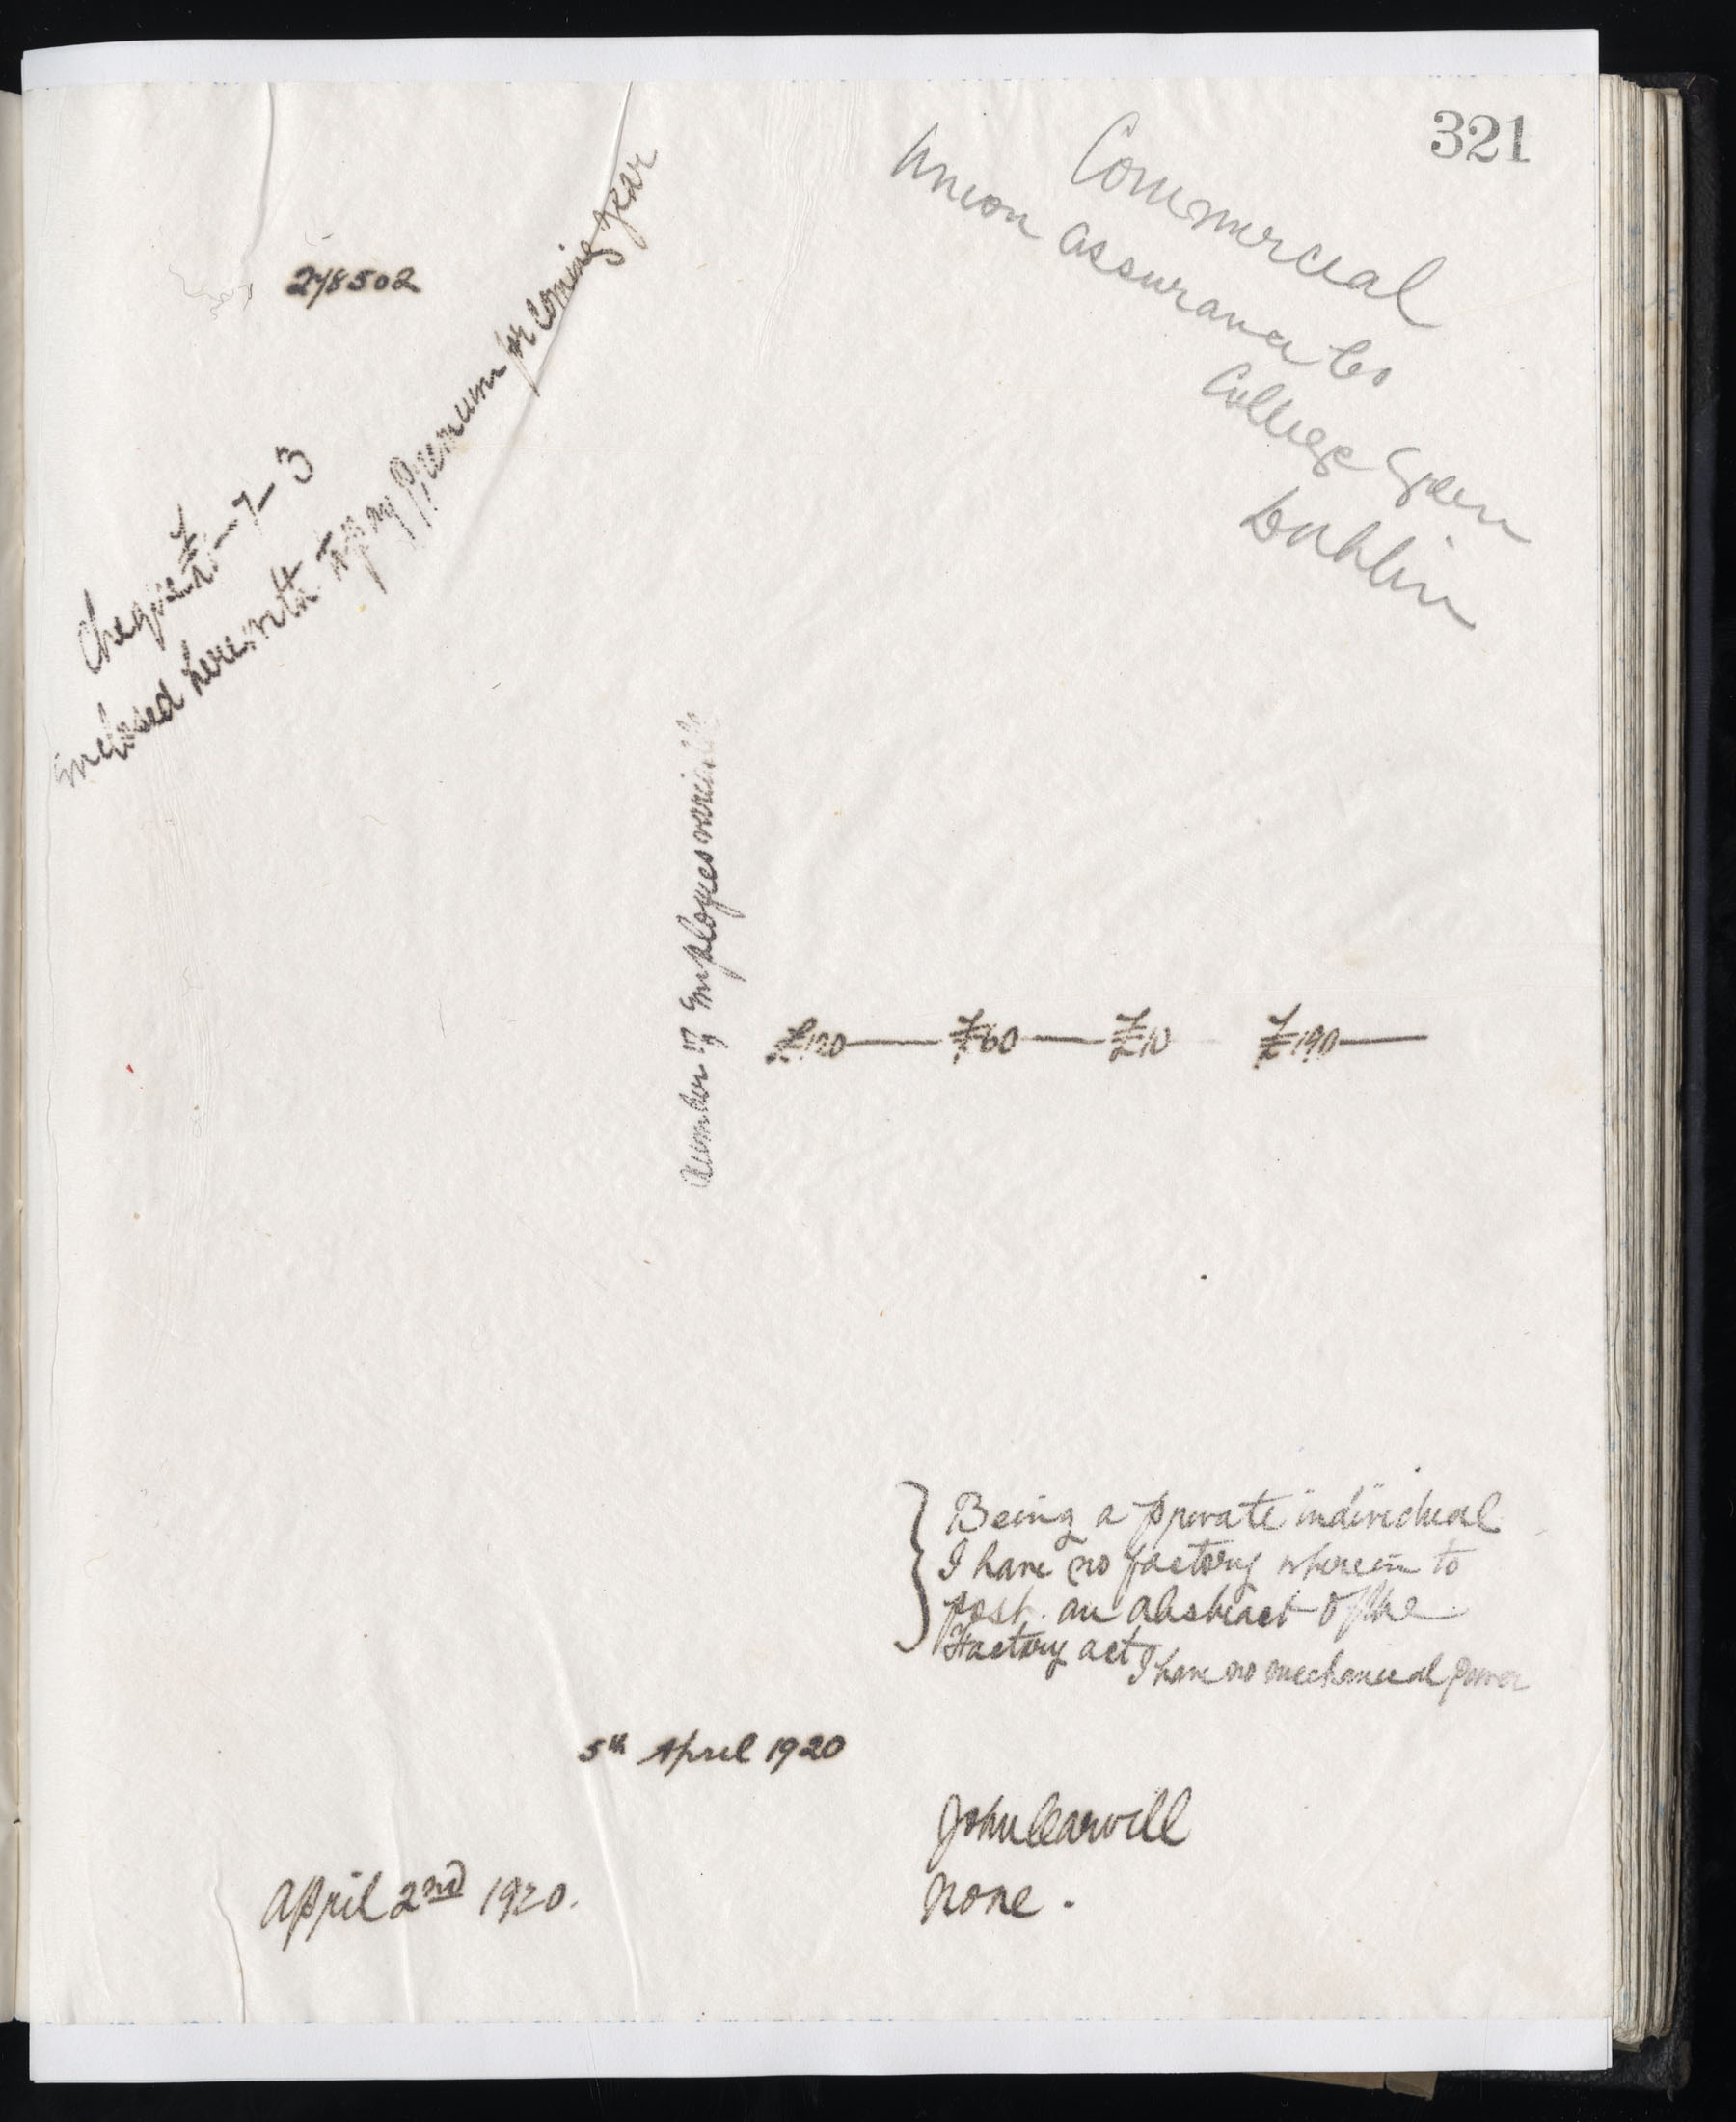 321
Commercial
Union Assurance Co
College Green
Dublin
278502
Cheque £1-7-3
Enclosed herewith to pay Premium for Coming year
Number of Employees variable
£120 — £60 — £10 £190 —
Being a private individual
I have no factory wherein to
post an abstract of the
Factory act I have no mechanical power
5th April 1920
John Carvill
April 2nd 1920.
None.